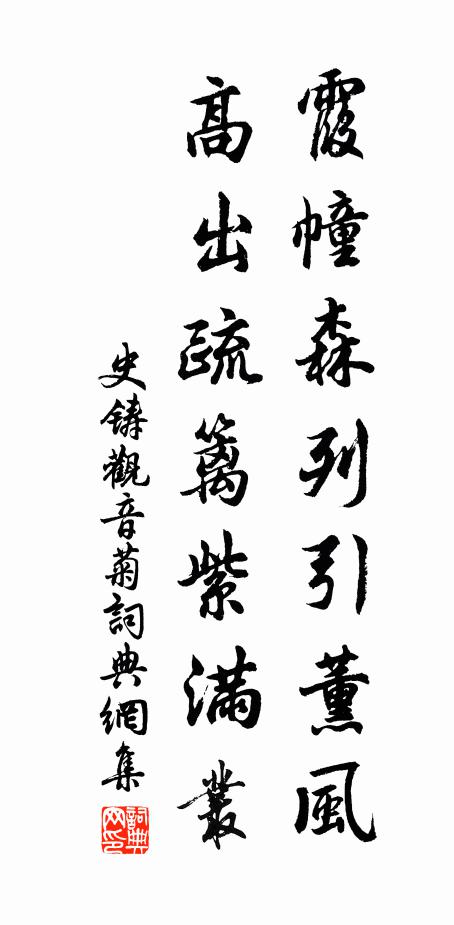 霞幢森列引薰風
高出疏篱紫满叢
史鑄觀音菊詞典網集
詞典网印